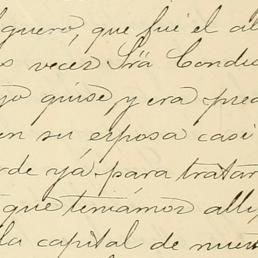 guero, que fué el al
s vecez Sra Condu
yo quise, y era prec
en su esposa casi
rde ya para tratar
que teniamos alli,
la capital de nues